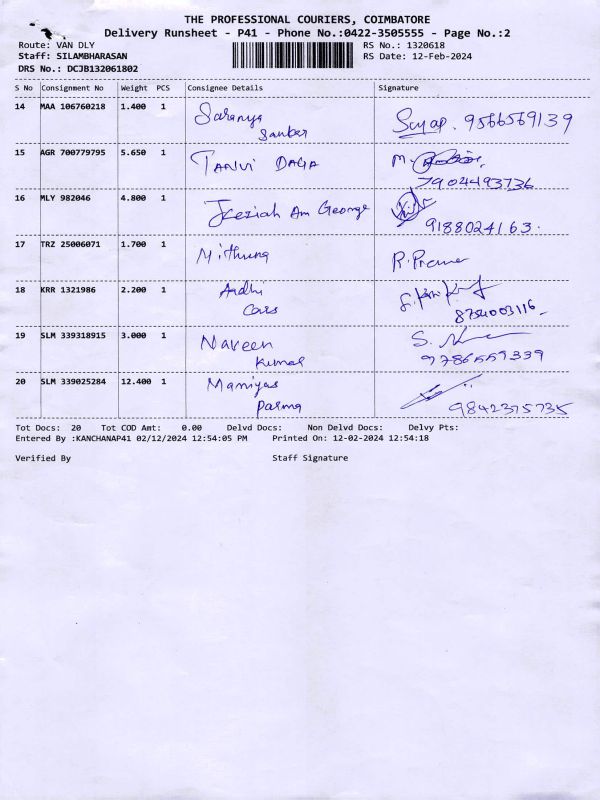 THE PROFESSIONAL COURIERS, COIMBATORE
Delivery Runsheet - P41 - Phone No.:0422-3505555 - Page No.:2
Route: VAN DLY RS No.: 1320618
Staff: SILAMBHARASAN RS Date: 12-Feb-2024
DRS No.: DCJB132061802
S No Consignment No Weight PCS Consignee Details Signature
14 MAA 106760218 1.400 1 Saranya 9566569139
Sankar
15 AGR 700779795 5.650 1 TANVI DAGA M.
7904493736
16 MLY 982046 4.800 1 Jeeziah Am George
9188024163.
17 TRZ 25006071 1.700 1 Mithuna R. Prema
18 KRR 1321986 2.200 1 Aadhi
Cars 8754003116
19 SLM 339318915 3.000 1 Naveen S.
Kumar 9786559339
20 SLM 339025284 12.400 1 Maniyas
Parma 9842375735
Tot Docs: 20 Tot COD Amt: 0.00 Delvd Docs: Non Delvd Docs: Delvy Pts:
Entered By :KANCHANAP41 02/12/2024 12:54:05 PM Printed On: 12-02-2024 12:54:18
Verified By Staff Signature